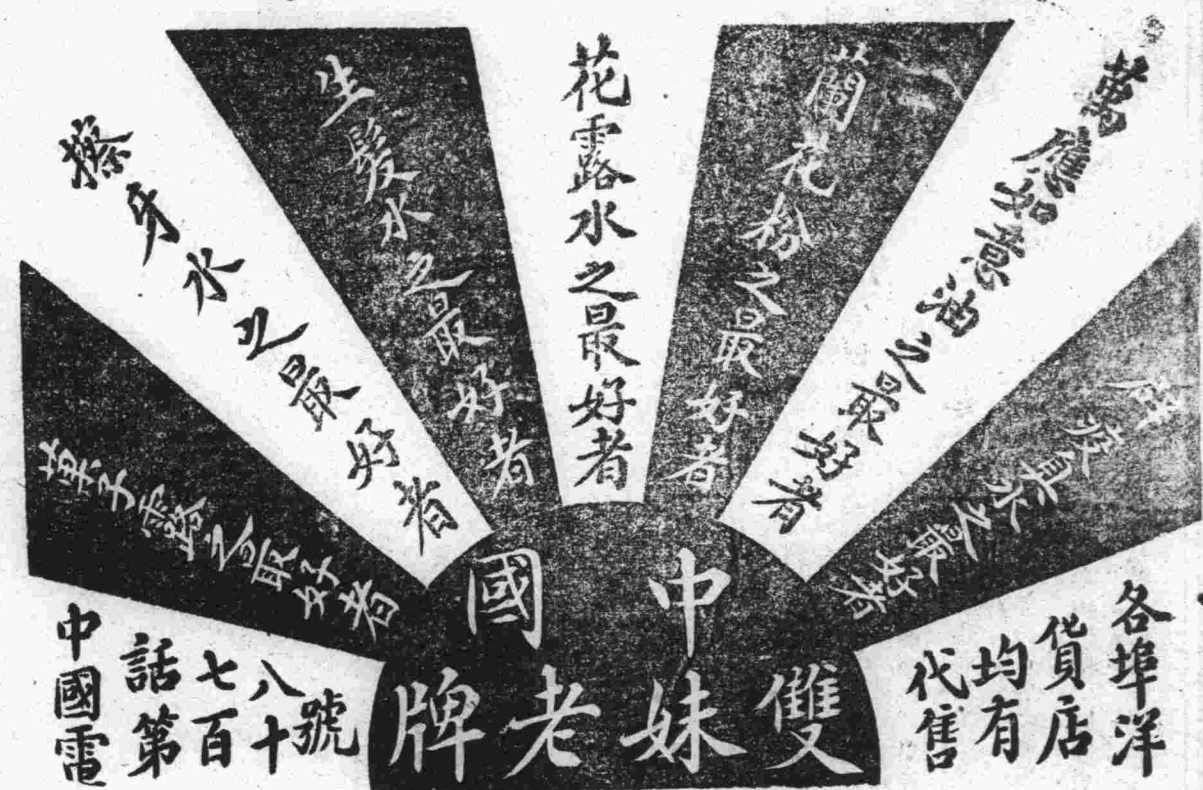 疫臭水之最好者
萬應如意油之最好者
蘭花粉之最好者
花露水之最好者
生髮水之最好者
擦牙水之最好者
菓子露之最好者
中國
雙妹老牌
各埠洋
貨店
均有
代售
中國電
話第
七百
八十
號